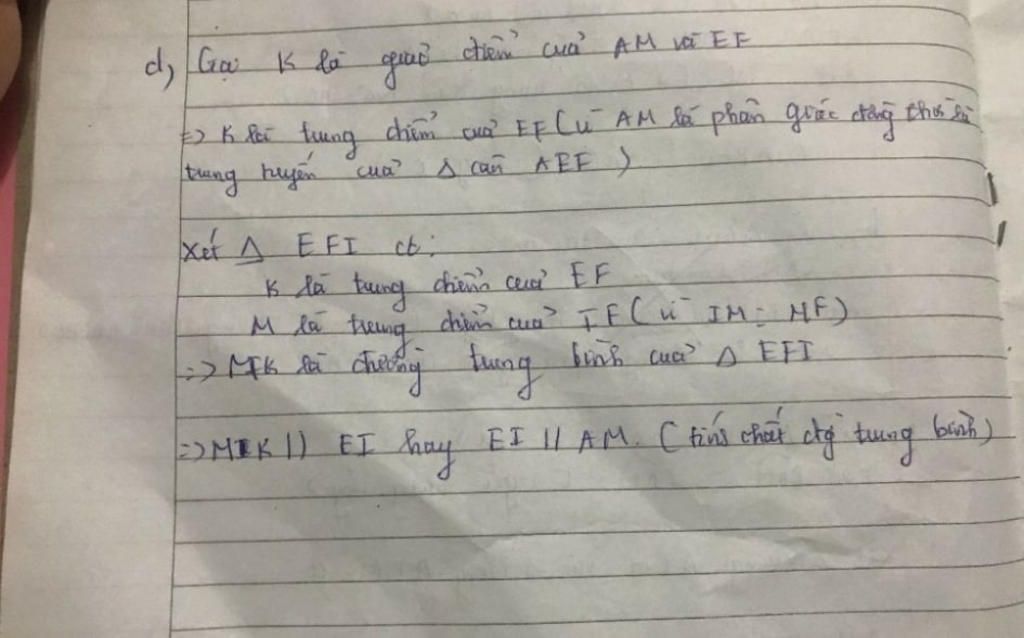 d, Gọi K là giao điểm của AM và EF
=> K là trung điểm của EF (vì AM là phân giác đồng thời là
trung tuyến của Δ cân AEF)
Xét Δ EFI có:
K là trung điểm của EF
M là trung điểm của IF (vì IM = MF)
=> MK là đường trung bình của Δ EFI
=> MK // EI hay EI // AM. (tính chất đg trung bình)